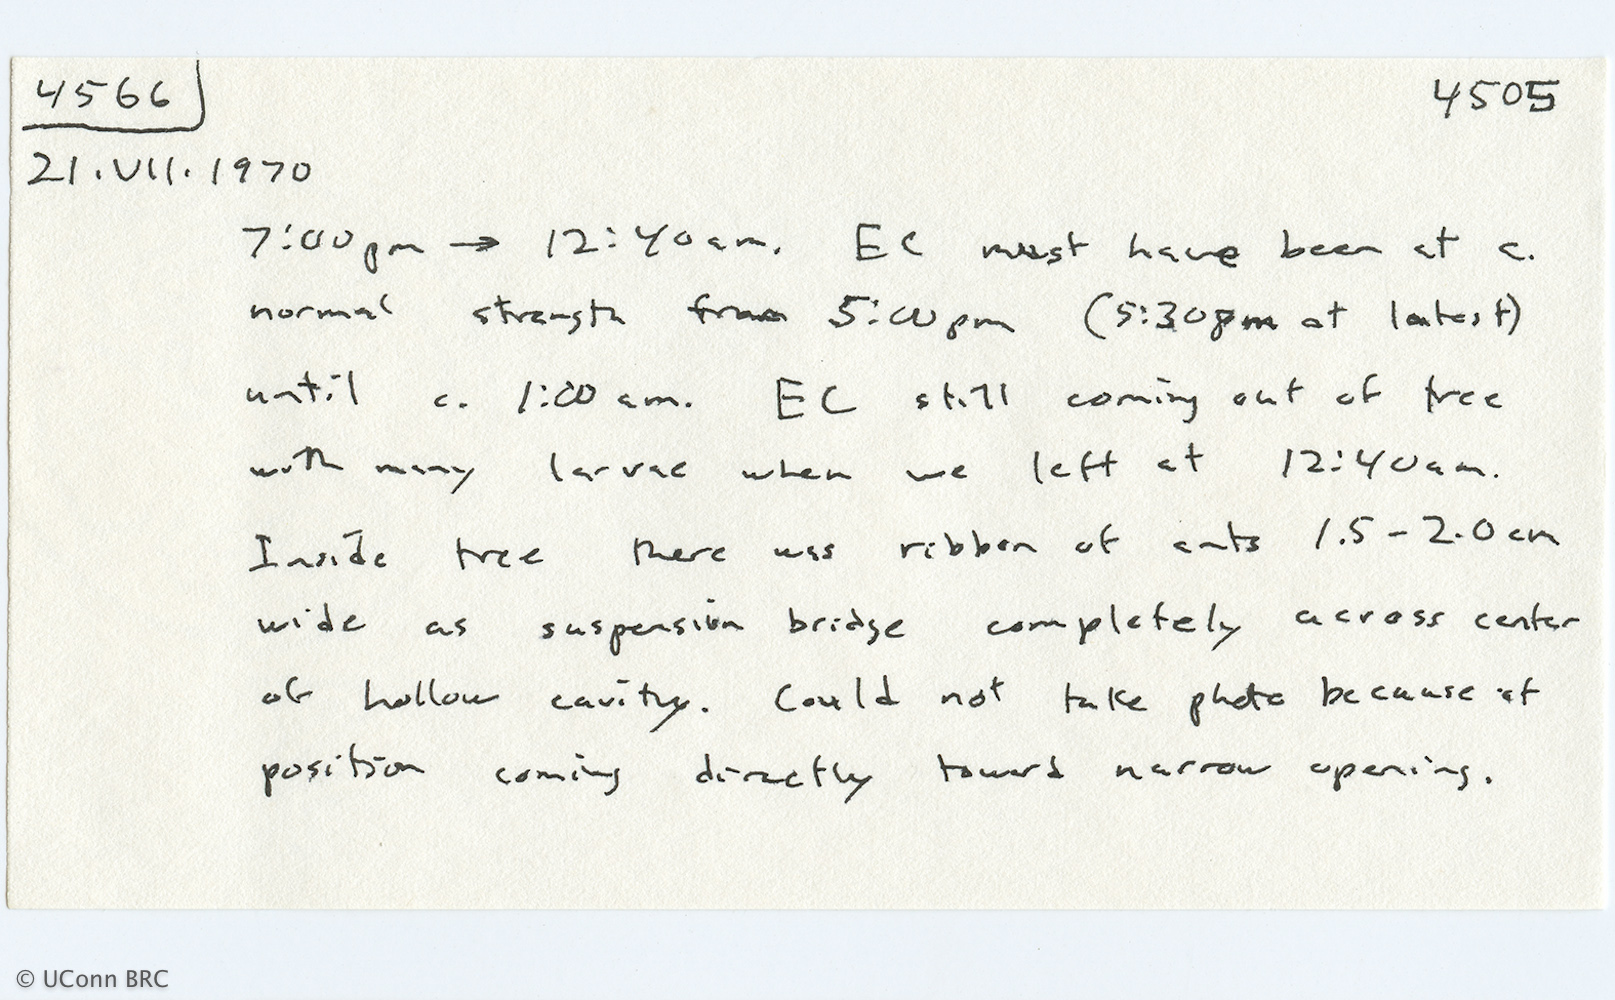 4566 4505
21.VII.1970
7:00pm → 12:40am. EC must have been at c.
normal strength from 5:00pm (5:30pm at latest)
until c. 1:00 am. EC still coming out of tree
with many larvae when we left at 12:40am.
Inside tree there was ribbon of ants 1.5-2.0cm
wide as suspension bridge completely across center
of hollow cavity. Could not take photo because of
position coming directly toward narrow opening.
© UConn BRC